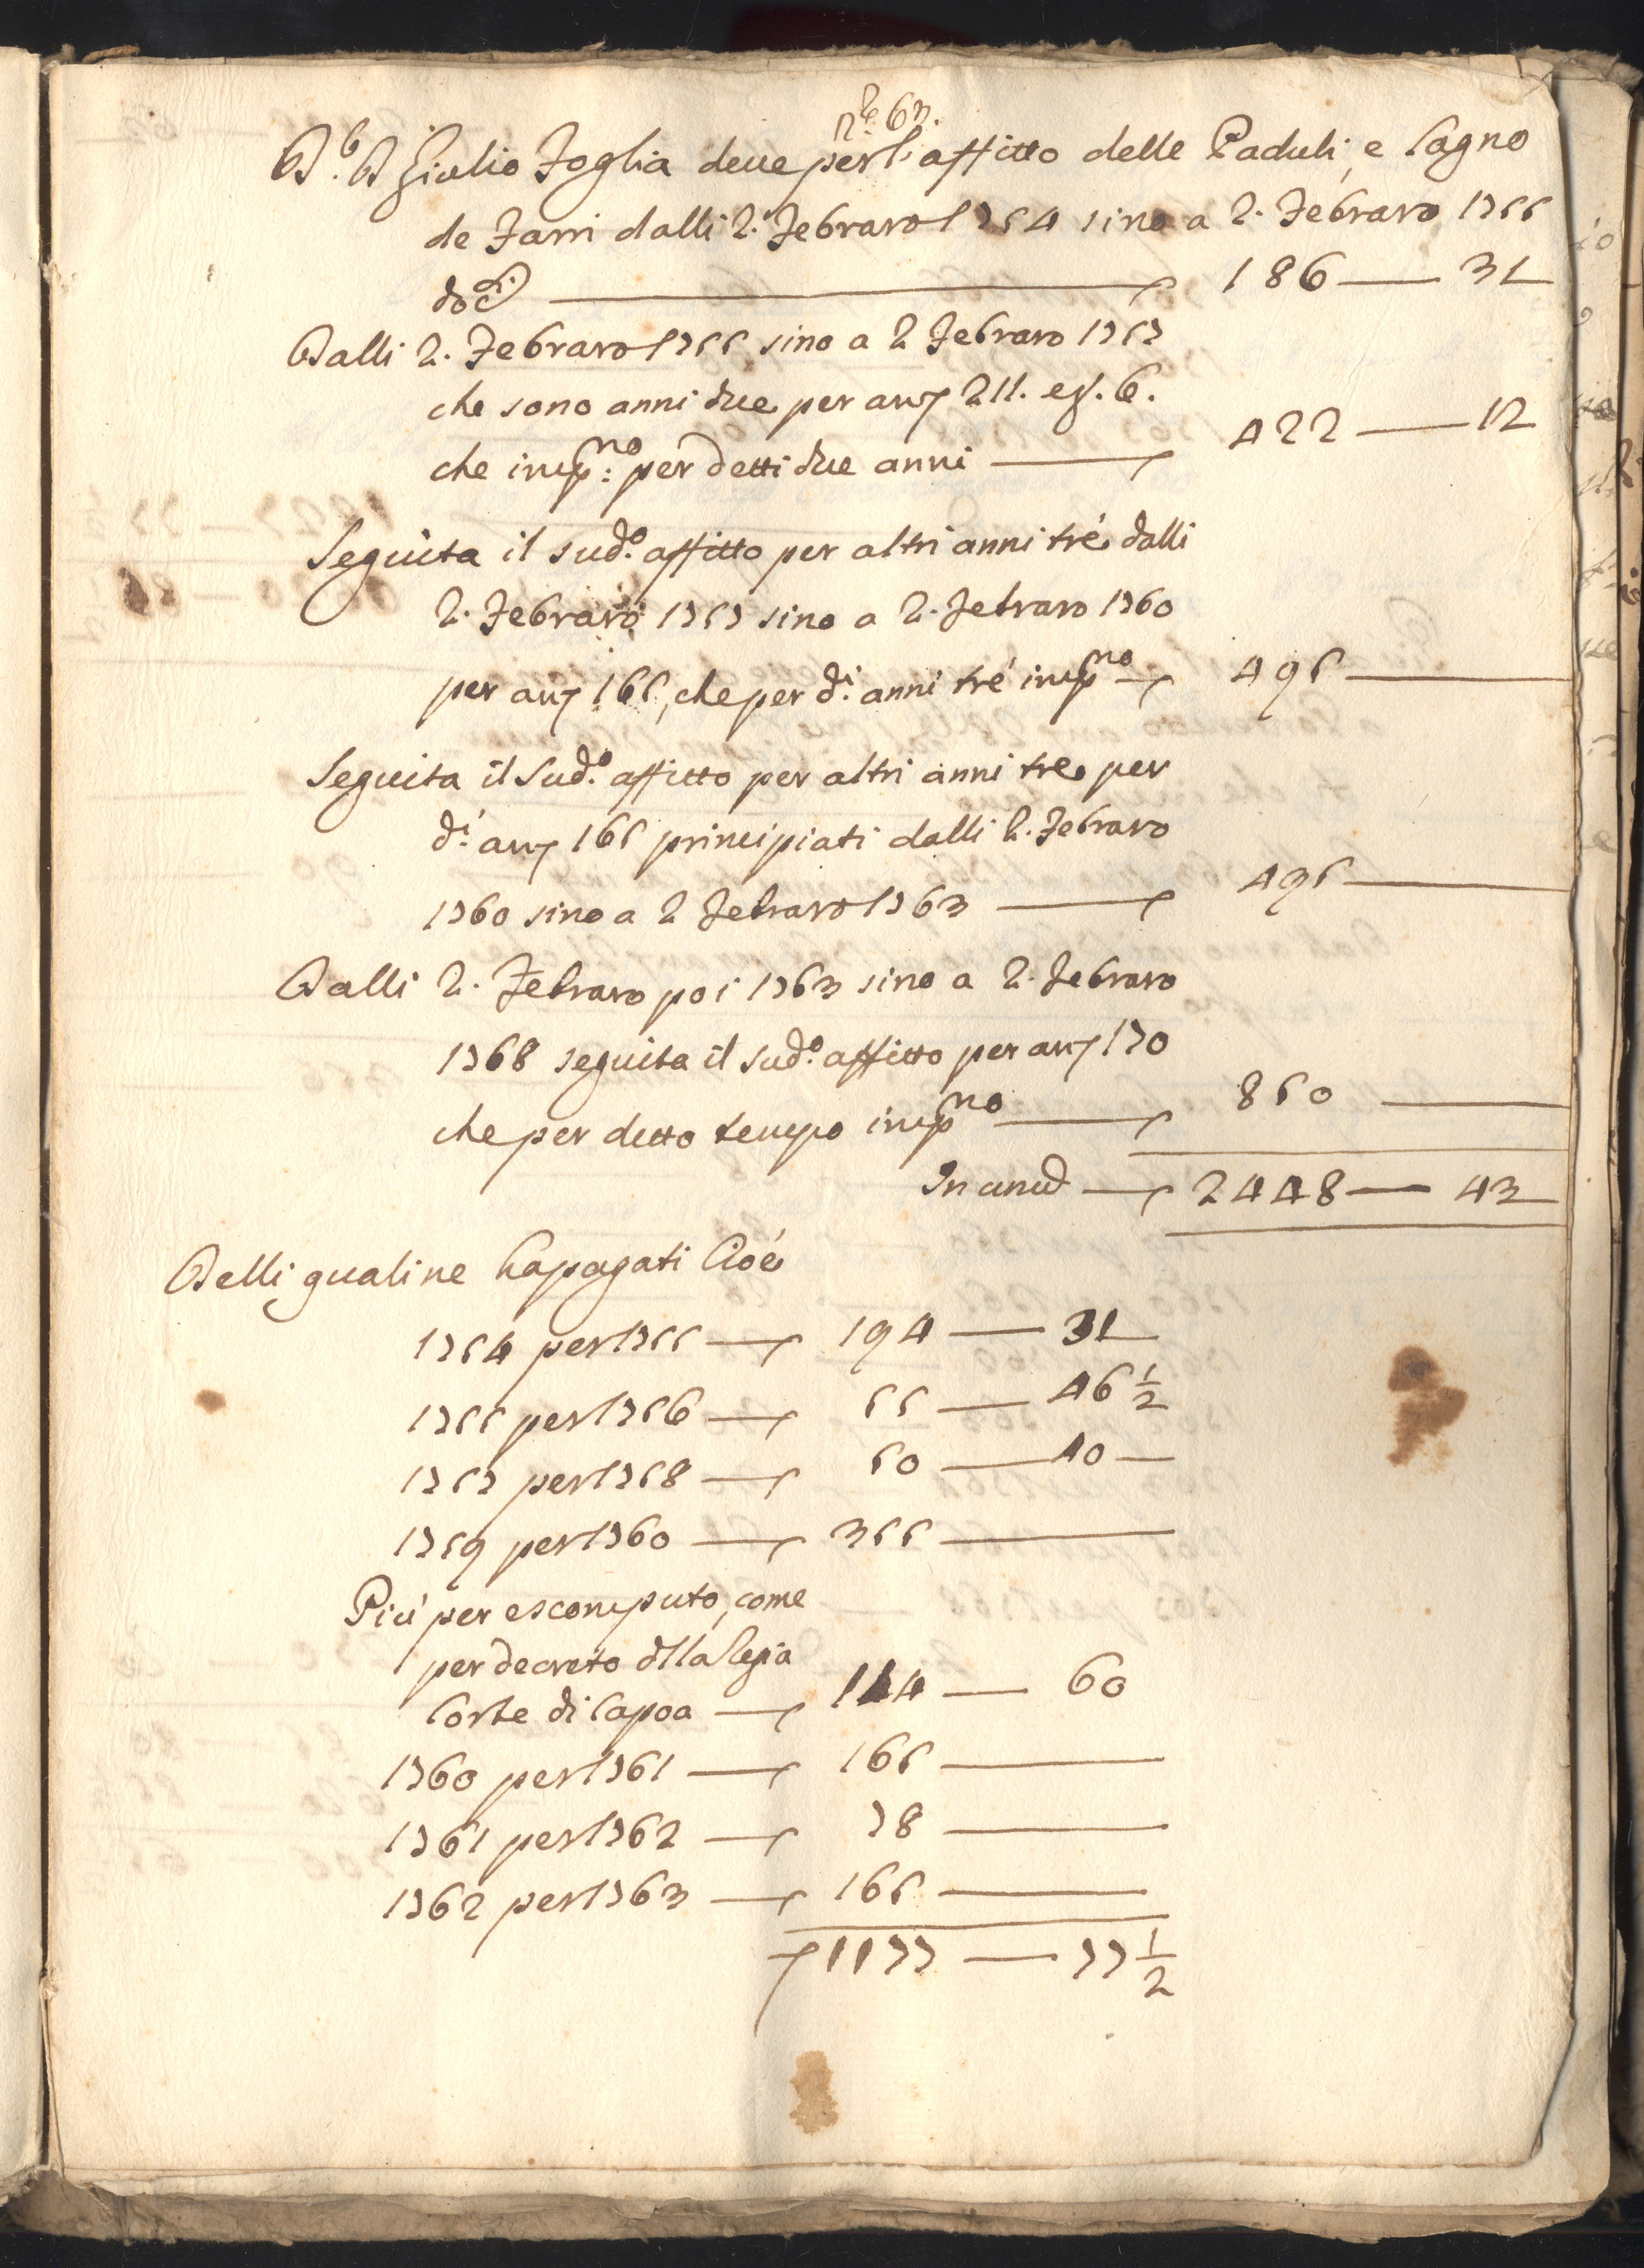 n.º 63.
D.r D Giulio Foglia deve per l'affitto delle Paduli, e Lagno
de Farri dalli 2. Febraro 1754 sino a 2. Febraro 1755
doc.ti 186 — 31
Dalli 2. Febraro 1755 sino a 2 Febraro 1757
che sono anni due per an 211. e g. 6.
che imp.no per detti due anni 422 — 12
Seguita il sud.o affitto per altri anni tré dalli
2. Febraro 1757 sino a 2. Febraro 1760
per an 165, che per d.i anni tré imp.no 495 —
Seguita il Sud.o affitto per altri anni tre per
d.i an 165 principiati dalli 2. Febraro
1760 sino a 2 Febraro 1763 — 495 —
Dalli 2. Febraro poi 1763 sino a 2. Febraro
1768 seguita il sud.o affitto per an 170
che per detto tempo imp.no — 850 —
In unum — 2448 — 43
Delli quali ne ha pagati Cioé
1754 per 1755 — 194 — 31
1755 per 1756 — 55 — 46 1/2
1757 per 1758 — 50 — 40 —
1759 per 1760 — 355 —
Piú per escomputo, come
per decreto dlla Regia
Corte di Capoa — 114 — 60
1760 per 1761 — 165 —
1761 per 1762 — 78 —
1762 per 1763 — 165 —
1177 — 77 1/2